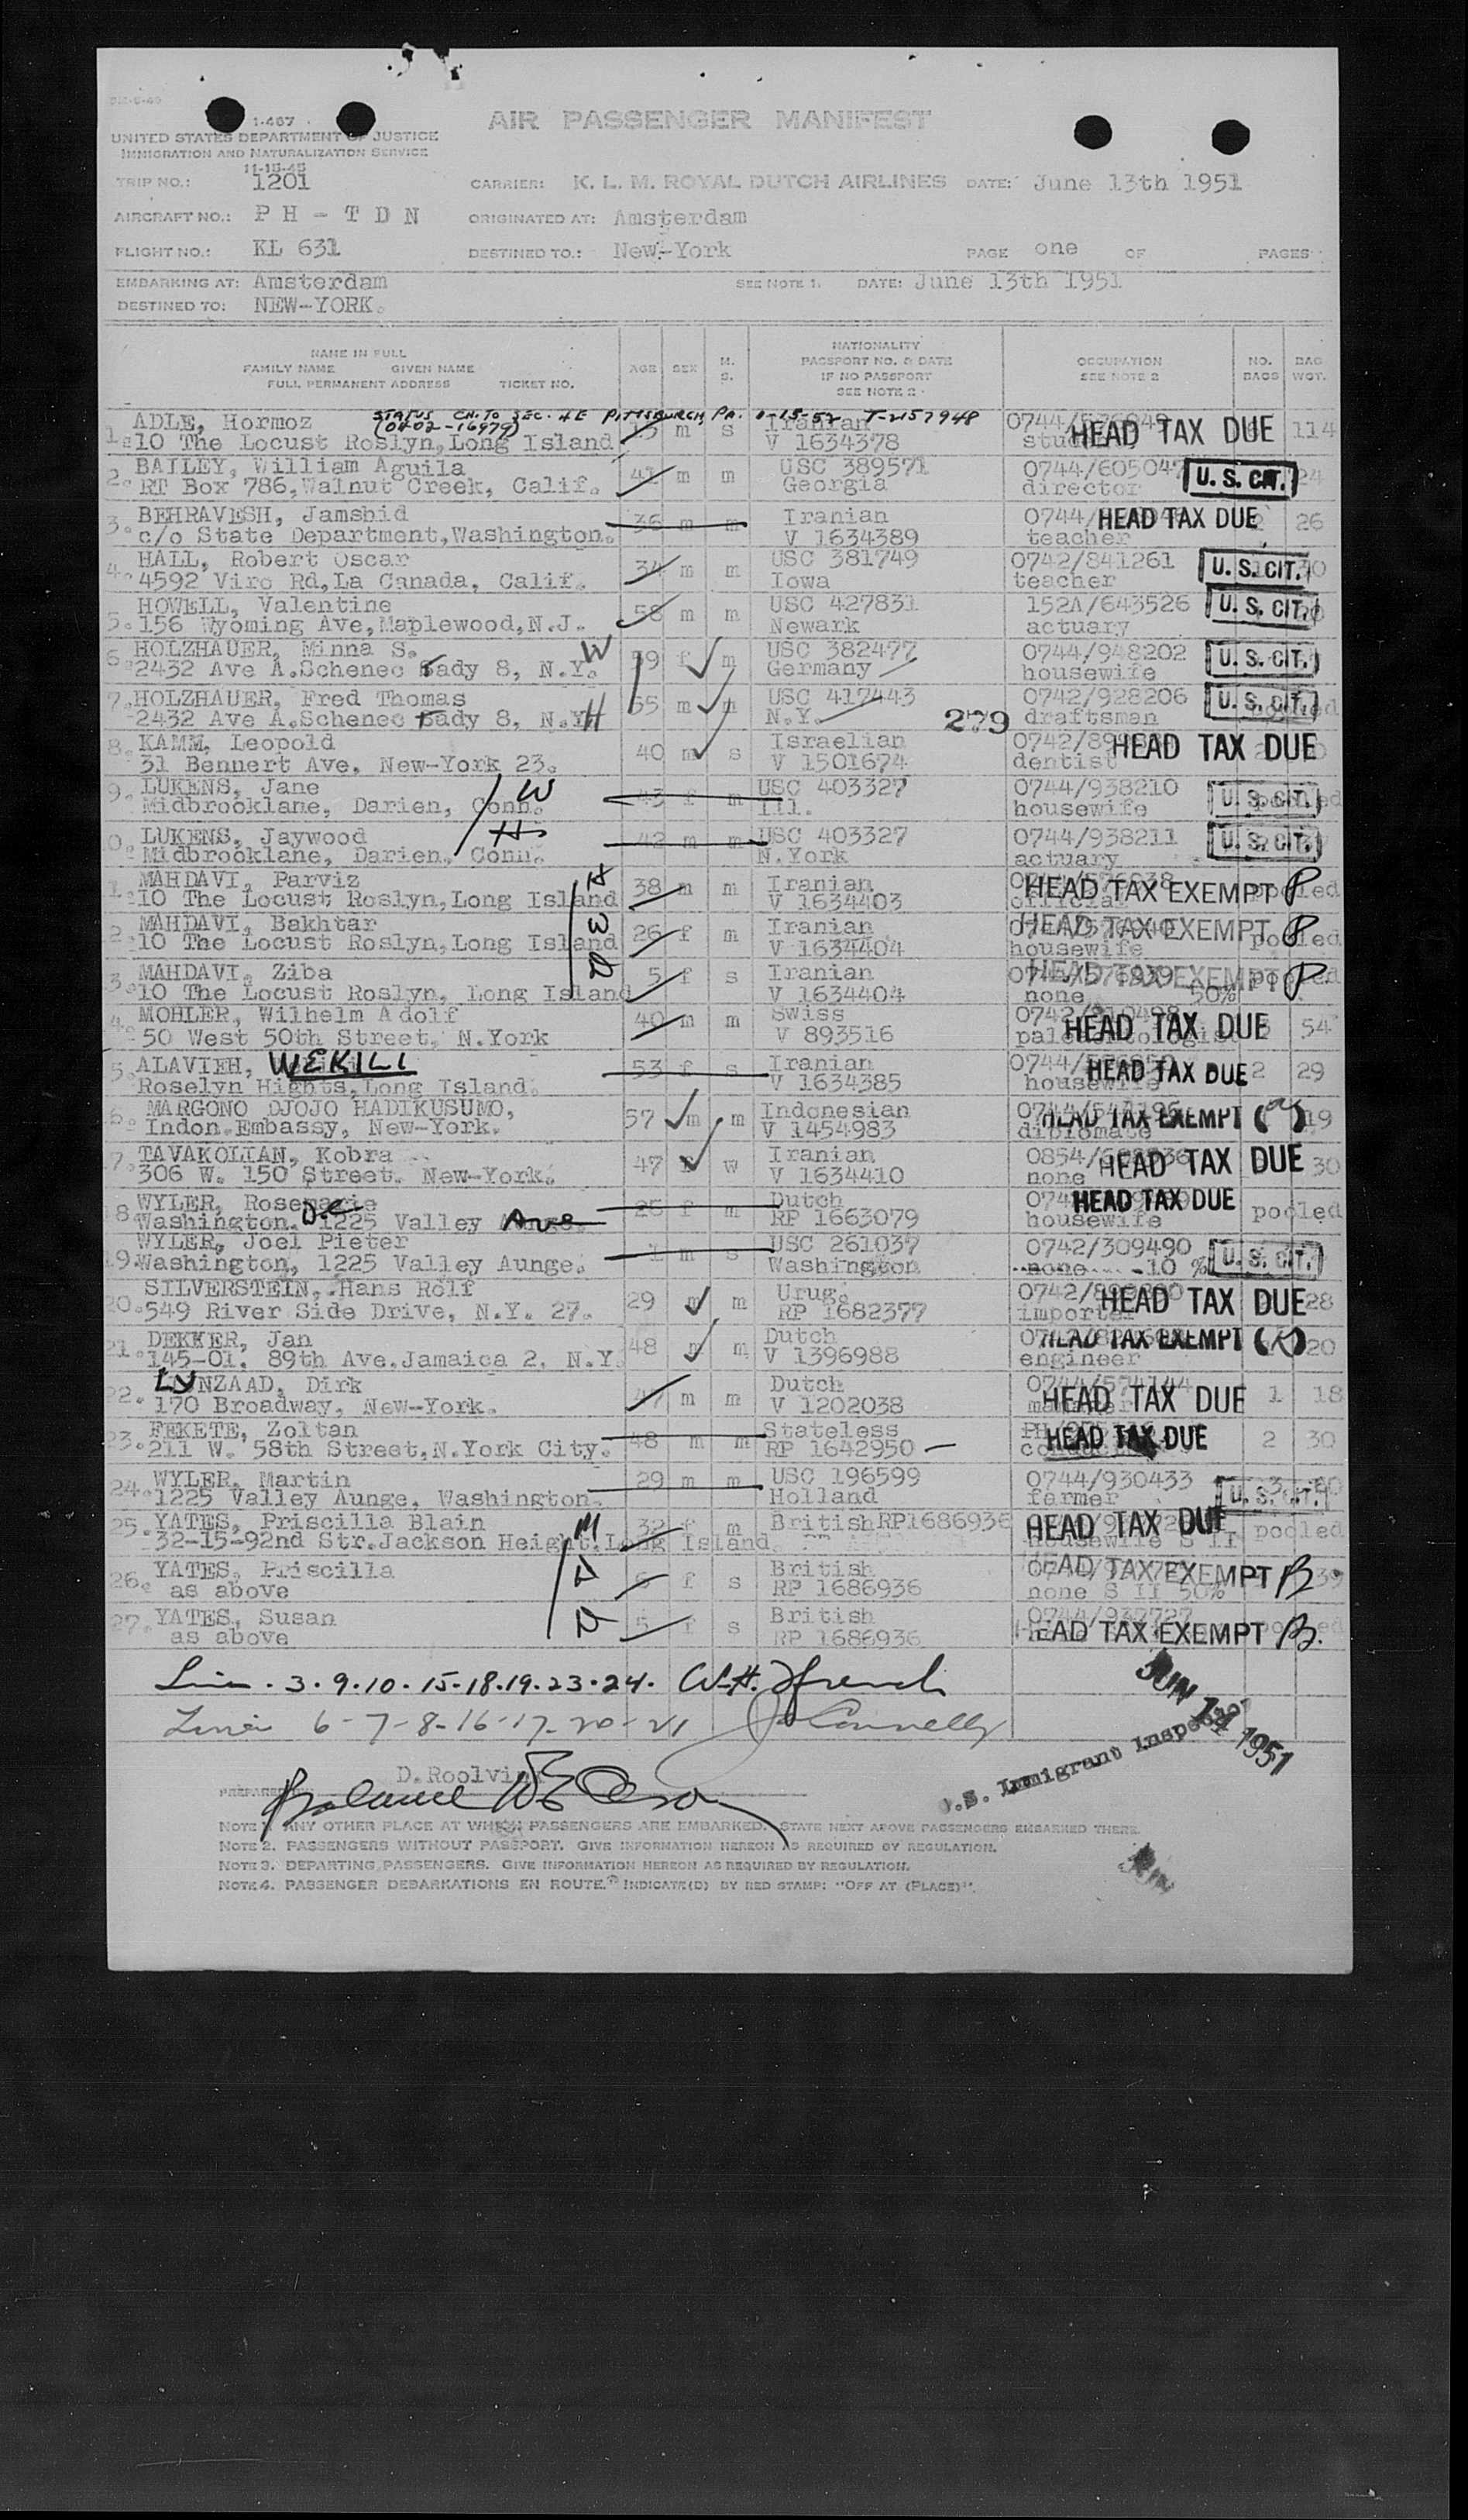 1-467
UNITED STATES DEPARTMENT OF JUSTICE
IMMIGRATION AND NATURALIZATION SERVICE
11-15-45
AIR PASSENGER MANIFEST
TRIP NO.: 1201 CARRIER: K. L. M. ROYAL DUTCH AIRLINES DATE: June 13th 1951
AIRCRAFT NO.: P H - T D N ORIGINATED AT: Amsterdam
FLIGHT NO.: KL 631 DESTINED TO.: New-York PAGE one OF PAGES
EMBARKING AT: Amsterdam SEE NOTE 1. DATE: June 13th 1951
DESTINED TO: NEW-YORK.
NAME IN FULL
FAMILY NAME GIVEN NAME
FULL PERMANENT ADDRESS TICKET NO.
AGE SEX M. S.
NATIONALITY
PASSPORT NO. & DATE
IF NO PASSPORT
SEE NOTE 2
OCCUPATION
SEE NOTE 2
NO. BAGS
BAG WGT.
STATUS CH. TO SEC. 4E PITTSBURGH, PA. T-2157948
(0402-16979)
1. ADLE, Hormoz m s Iranian 0744/ HEAD TAX DUE 114
10 The Locust Roslyn, Long Island V 1634378
2. BAILEY, William Aguila 41 m m USC 389571 0744/60504 U. S. CIT. 24
RT Box 786, Walnut Creek, Calif. Georgia director
3. BEHRAVESH, Jamshid 36 m m Iranian 0744/ HEAD TAX DUE 26
c/o State Department, Washington. V 1634389 teacher
4. HALL, Robert Oscar 34 m m USC 381749 0742/841261 U. S. CIT.
4592 Viro Rd, La Canada, Calif. Iowa teacher
5. HOWELL, Valentine 58 m m USC 427831 152A/643526 U. S. CIT.
156 Wyoming Ave, Maplewood, N.J. Newark actuary
6. HOLZHAUER, Minna S. W f m USC 382477 0744/948202 U. S. CIT.
2432 Ave A. Schenec tady 8, N.Y. Germany housewife
7. HOLZHAUER, Fred Thomas m m USC 417443 0742/928206 U. S. CIT.
2432 Ave A. Schenec tady 8, N.Y. H N.Y. 279 draftsman
8. KAMM, Leopold 40 m s Israelian 0742/ HEAD TAX DUE
31 Bennert Ave, New-York 23. V 1501674 dentist
9. LUKENS, Jane W 43 f m USC 403327 0744/938210 U. S. CIT. pooled
Midbrooklane, Darien, Conn. Ill. housewife
0. LUKENS, Jaywood H 42 m m USC 403327 0744/938211 U. S. CIT.
Midbrooklane, Darien, Conn. N.York actuary
1. MAHDAVI, Parviz H 38 m m Iranian HEAD TAX EXEMPT P pooled
10 The Locust Roslyn, Long Island V 1634403 official
2. MAHDAVI, Bakhtar W 26 f m Iranian HEAD TAX EXEMPT P pooled
10 The Locust Roslyn, Long Island V 1634404 housewife
3. MAHDAVI, Ziba D 5 f s Iranian HEAD TAX EXEMPT P
10 The Locust Roslyn, Long Island V 1634404 none 50%
4. MOHLER, Wilhelm Adolf 40 m m Swiss HEAD TAX DUE 54
50 West 50th Street, N.York V 893516
5. ALAVIEH, WEKILI 53 f s Iranian 0744/ HEAD TAX DUE 2 29
Roselyn Hights, Long Island. V 1634385 housewife
6. MARGONO DJOJO HADIKUSUMO, 57 m m Indonesian HEAD TAX EXEMPT 19
Indon.Embassy, New-York. V 1454983 diplomate
7. TAVAKOLIAN, Kobra 47 w Iranian 0854/ HEAD TAX DUE 30
306 W. 150 Street. New-York. V 1634410 none
18 WYLER, Rosemarie 26 f m Dutch HEAD TAX DUE pooled
Washington. D.C. 1225 Valley Ave RP 1663079 housewife
19. WYLER, Joel Pieter 1 m s USC 261037 0742/309490 U. S. CIT.
Washington, 1225 Valley Aunge. Washington none -10 %
20. SILVERSTEIN, Hans Rolf 29 m m Urug. 0742/ HEAD TAX DUE 28
549 River Side Drive, N.Y. 27. RP 1682377 importer
21. DEKKER, Jan 48 m m Dutch HEAD TAX EXEMPT 20
145-01, 89th Ave, Jamaica 2, N.Y. V 1396988 engineer
2. LYNZAAD, Dirk 47 m m Dutch 0744/574144 HEAD TAX DUE 1 18
170 Broadway, New-York. V 1202038
23. FEKETE, Zoltan 48 m m Stateless HEAD TAX DUE 2 30
211 W. 58th Street, N.York City. RP 1642950
24. WYLER, Martin 29 m m USC 196599 0744/930433 U. S. CIT.
1225 Valley Aunge, Washington. Holland farmer
25. YATES, Priscilla Blain M 32 f m British RP1686936 HEAD TAX DUE pooled
32-15-92nd Str. Jackson Height, Long Island housewife S II
26. YATES, Priscilla D 6 f s British HEAD TAX EXEMPT B. 39
as above RP 1686936 none S II 50%
27. YATES, Susan D 5 f s British 0744/937727 HEAD TAX EXEMPT B.
as above RP 1686936
Lines . 3 . 9 . 10 . 15 - 18 . 19 . 23 . 24 . W.H. French
Lines 6 - 7 - 8 - 16 - 17 - 20 - 21 Connelly
JUN 14 1951
U.S. Immigrant Inspector
PREPARED BY D. Roolvink
NOTE 1. ANY OTHER PLACE AT WHICH PASSENGERS ARE EMBARKED. STATE NEXT ABOVE PASSENGERS EMBARKED THERE.
NOTE 2. PASSENGERS WITHOUT PASSPORT. GIVE INFORMATION HEREON AS REQUIRED BY REGULATION.
NOTE 3. DEPARTING PASSENGERS. GIVE INFORMATION HEREON AS REQUIRED BY REGULATION.
NOTE 4. PASSENGER DEBARKATIONS EN ROUTE. INDICATE(D) BY RED STAMP: "OFF AT (PLACE)".